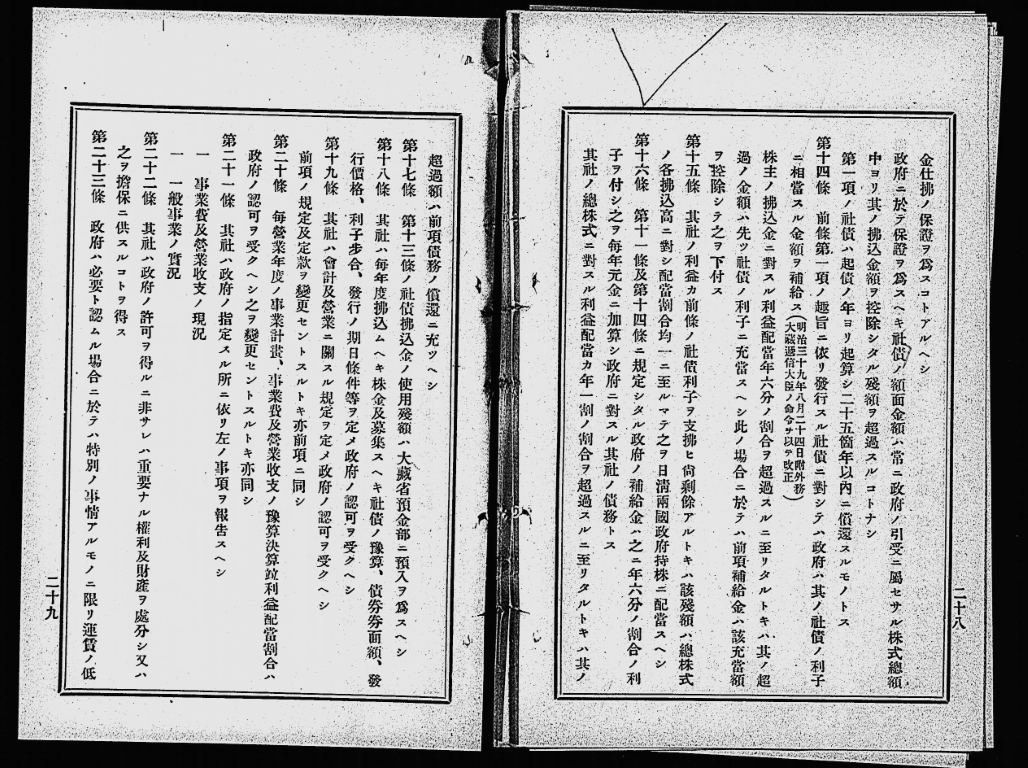 金仕拂ノ保證ヲ爲スコトアルヘシ
政府ニ於テ保證ヲ爲スヘキ社債ノ額面金額ハ常ニ政府ノ引受ニ屬セサル株式總額
中ヨリ其ノ拂込金額ヲ控除シタル殘額ヲ超過スルコトナシ
第一項ノ社債ハ起債ノ年ヨリ起算シ二十五箇年以內ニ償還スルモノトス
第十四條 前條第一項ノ趣旨ニ依リ發行スル社債ニ對シテハ政府ハ其ノ社債ノ利子
ニ相當スル金額ヲ補給ス(明治三十九年八月二十四日附外務
大藏遞信大臣ノ命令ヲ以テ改正)
株主ノ拂込金ニ對スル利益配當年六分ノ割合ヲ超過スルニ至リタルトキハ其ノ超
過ノ金額ハ先ツ社債ノ利子ニ充當スヘシ此ノ場合ニ於テハ前項補給金ハ該充當額
ヲ控除シテ之ヲ下付ス
第十五條 其社ノ利益カ前條ノ社債利子ヲ支拂ヒ尚剩餘アルトキハ該殘額ハ總株式
ノ各拂込高ニ對シ配當割合均一ニ至ルマテ之ヲ日淸兩國政府持株ニ配當スヘシ
第十六條 第十一條及第十四條ニ規定シタル政府ノ補給金ハ之ニ年六分ノ割合ノ利
子ヲ付シ之ヲ每年元金ニ加算シ政府ニ對スル其社ノ債務トス
其社ノ總株式ニ對スル利益配當カ年一割ノ割合ヲ超過スルニ至リタルトキハ其ノ
二十八
超過額ハ前項債務ノ償還ニ充ツヘシ
第十七條 第十三條ノ社債拂込金ノ使用殘額ハ大藏省預金部ニ預入ヲ爲スヘシ
第十八條 其社ハ每年度拂込ムヘキ株金及募集スヘキ社債ノ豫算、債券券面額、發
行價格、利子步合、發行ノ期日條件等ヲ定メ政府ノ認可ヲ受クヘシ
第十九條 其社ハ會計及營業ニ關スル規定ヲ定メ政府ノ認可ヲ受クヘシ
前項ノ規定及定款ヲ變更セントスルトキ亦前項ニ同シ
第二十條 每營業年度ノ事業計畫、事業費及營業收支ノ豫算決算竝利益配當割合ハ
政府ノ認可ヲ受クヘシ之ヲ變更セントスルトキ亦同シ
第二十一條 其社ハ政府ノ指定スル所ニ依リ左ノ事項ヲ報告スヘシ
一 事業費及營業收支ノ現況
一 一般事業ノ實況
第二十二條 其社ハ政府ノ許可ヲ得ルニ非サレハ重要ナル權利及財產ヲ處分シ又ハ
之ヲ擔保ニ供スルコトヲ得ス
第二十三條 政府ハ必要ト認ムル場合ニ於テハ特別ノ事情アルモノニ限リ運賃ノ低
二十九